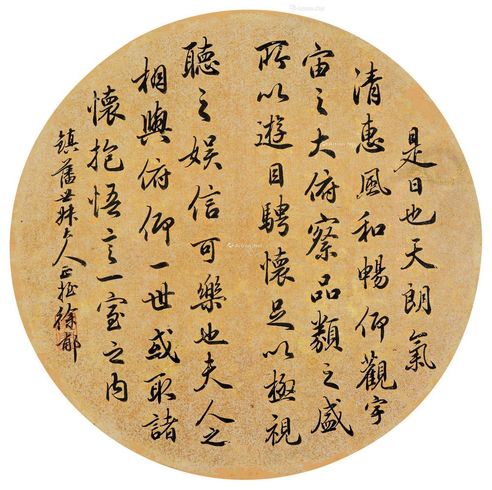 是日也天朗氣
清惠風和暢仰觀宇
宙之大俯察品類之盛
所以遊目騁懷足以極視
聽之娛信可樂也夫人之
相與俯仰一世或取諸
懷抱悟言一室之內
鎮藩世大人正徐郙